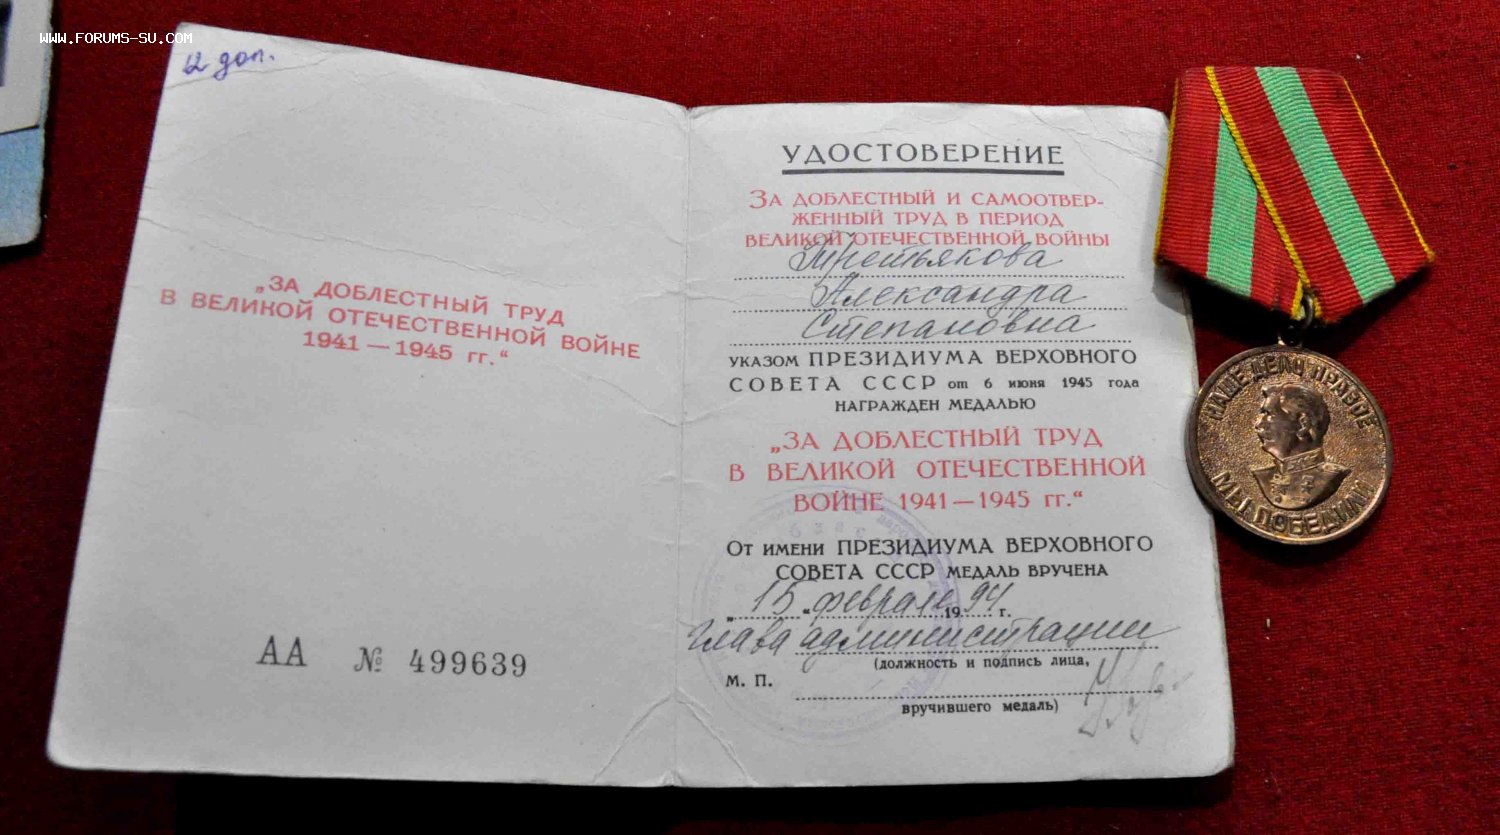 www.forums-su.com
12 доп.
„ЗА ДОБЛЕСТНЫЙ ТРУД
В ВЕЛИКОЙ ОТЕЧЕСТВЕННОЙ ВОЙНЕ
1941 — 1945 гг.“
АА № 499639
УДОСТОВЕРЕНИЕ
ЗА ДОБЛЕСТНЫЙ И САМООТВЕР-
ЖЕННЫЙ ТРУД В ПЕРИОД
ВЕЛИКОЙ ОТЕЧЕСТВЕННОЙ ВОЙНЫ
Третьякова
Александра
Степановна
УКАЗОМ ПРЕЗИДИУМА ВЕРХОВНОГО
СОВЕТА СССР от 6 июня 1945 года
НАГРАЖДЕН МЕДАЛЬЮ
„ЗА ДОБЛЕСТНЫЙ ТРУД
В ВЕЛИКОЙ ОТЕЧЕСТВЕННОЙ
ВОЙНЕ 1941 — 1945 гг.“
ОТ ИМЕНИ ПРЕЗИДИУМА ВЕРХОВНОГО
СОВЕТА СССР МЕДАЛЬ ВРУЧЕНА
„15“ февраля 1994 г.
глава администрации
(должность и подпись лица,
М. П.
вручившего медаль)
НАШЕ ДЕЛО ПРАВОЕ
МЫ ПОБЕДИЛИ